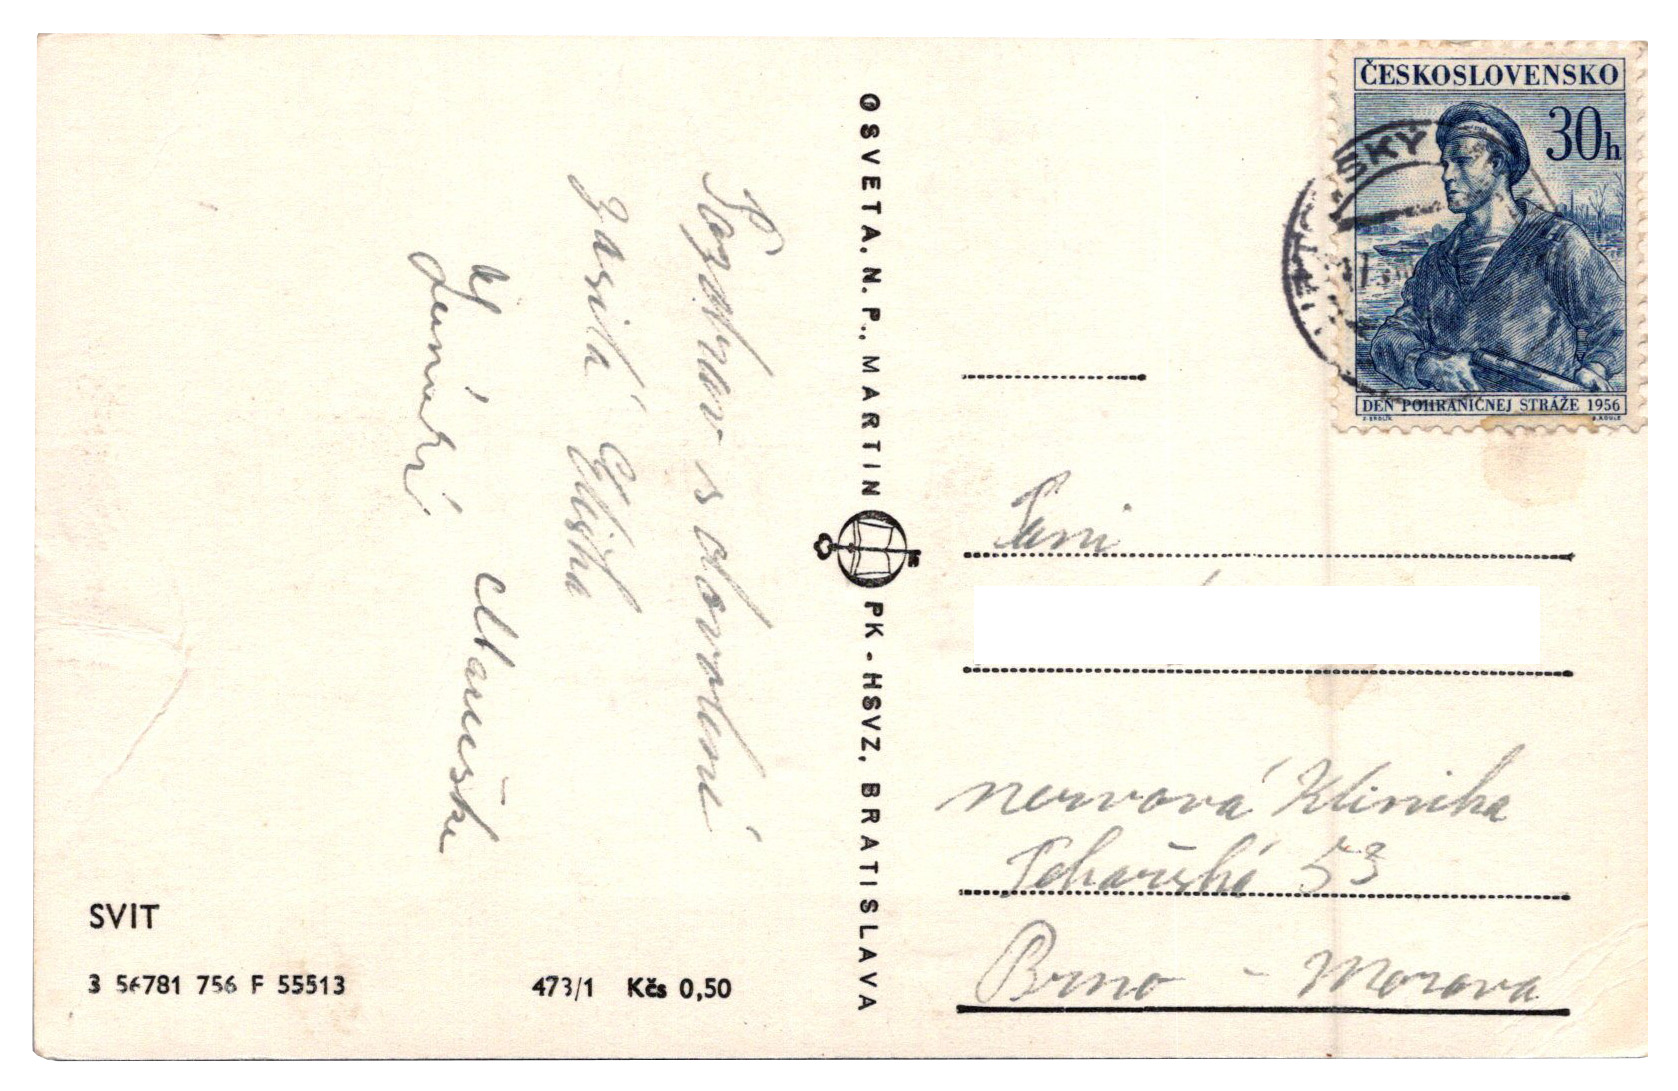 Pozdrav s dovolení
zasílá Eliška
Maruške
OSVETA, N. P., MARTIN PK - HSVZ, BRATISLAVA
SVIT
3 56781 756 F 55513 473/1 Kčs 0,50
ČESKOSLOVENSKO
30h
DEŇ POHRANIČNEJ STRÁŽE 1956
SKÝ
Paní
nervová Klinika
Pekařská 53
Brno - Morava